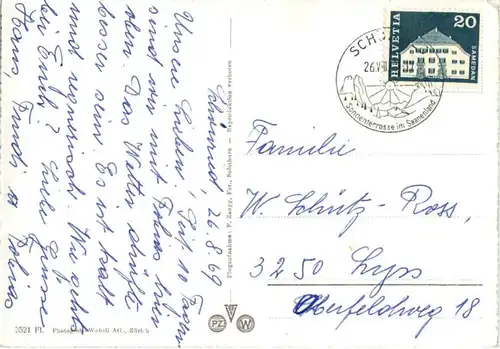 Schönried, 26.8.69
Unsere Lieben, Seit 10 Tagen
sind wir mit Tobias hier
oben. Das Wetter dürfte
besser sein. Es ist kalt
und regnerisch. Wie gehts
bei Euch? Liebe Grüsse
Hans, Trudi u.
Tobias
Flugaufnahme: F. Zaugg, Fot., Solothurn - Reproduktion verboten
3521 Fl. Photo Wehrli AG., Zürich
PZ W
SCHÖ
26.V
Sonnenterrasse im Saanenland
HELVETIA
20
SAMEDAN
Familie
W. Schütz-Ross,
3250 Lyss
Oberfeldweg 18